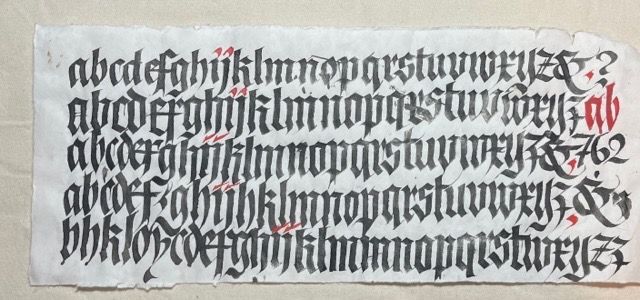 abcdefghijklmnopqrstuvwxyz&?
abcdefghijklmnopqrstuvwxyzab
abcdefghijklmnopqrstuvwxyz&762
abcdefzghijhklmnopqrstuvwxyz&
bhkloyzcdefghijklmnopqrstwxyzz